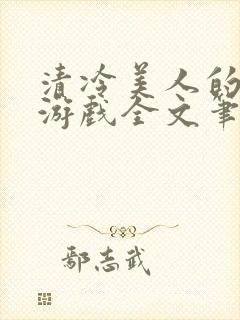 清冷美人的
游戏全文笔
鄢志武